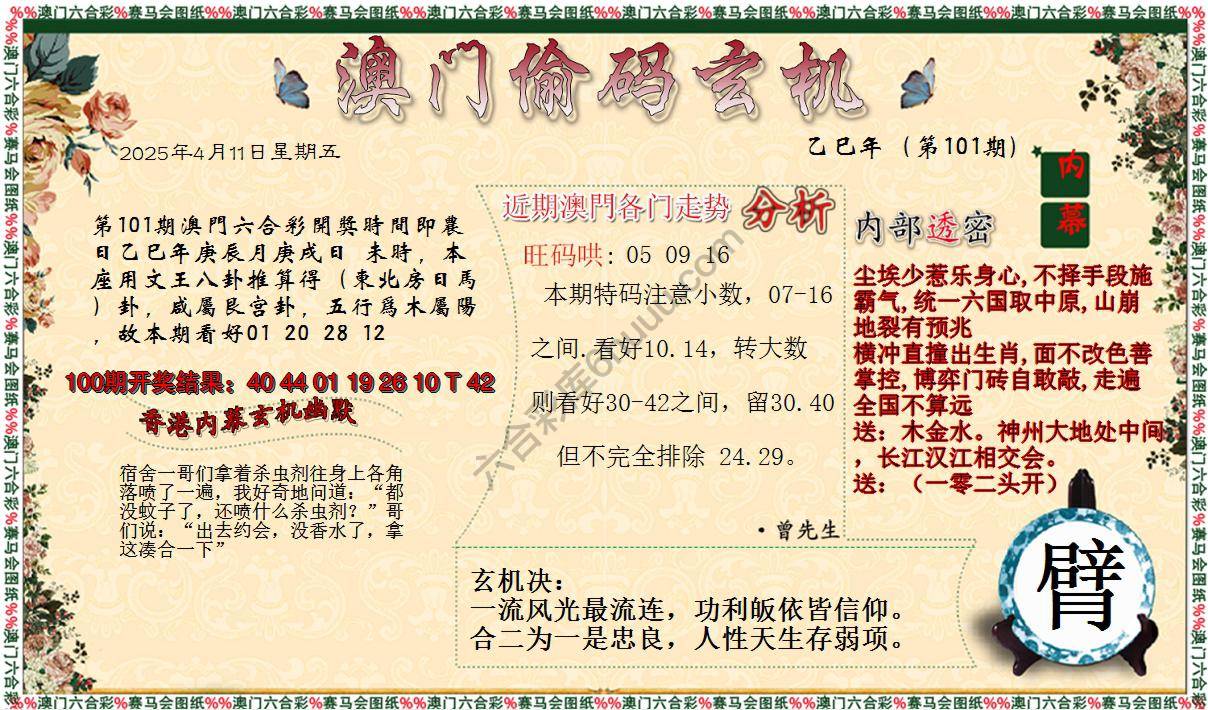 %%澳门六合彩%赛马会图纸%%澳门六合彩%赛马会图纸%%澳门六合彩%赛马会图纸%%澳门六合彩%赛马会图纸%%澳门六合彩%赛马会图纸%%澳门六合彩%赛马会图纸%%
澳门偷码玄机
2025年4月11日星期五
乙巳年（第101期）
内幕
第101期澳門六合彩開獎時間即農
日乙巳年庚辰月庚戌日 未時，本
座用文王八卦推算得（東北房日馬
）卦，咸屬艮宫卦，五行爲木屬陽
，故本期看好01 20 28 12
100期开奖结果：40 44 01 19 26 10 T 42
香港内幕玄机幽默
宿舍一哥们拿着杀虫剂往身上各角
落喷了一遍，我好奇地问道：“都
没蚊子了，还喷什么杀虫剂？”哥
们说：“出去约会，没香水了，拿
这凑合一下”
近期澳門各门走势 分析
旺码哄: 05 09 16
本期特码注意小数，07-16
之间.看好10.14，转大数
则看好30-42之间，留30.40
但不完全排除 24.29。
·曾先生
内部透密
尘埃少惹乐身心,不择手段施
霸气,统一六国取中原,山崩
地裂有预兆
横冲直撞出生肖,面不改色善
掌控,博弈门砖自敢敲,走遍
全国不算远
送：木金水。神州大地处中间
，长江汉江相交会。
送：（一零二头开）
玄机决：
一流风光最流连，功利皈依皆信仰。
合二为一是忠良，人性天生存弱项。
臂
六合彩库
%%澳门六合彩%赛马会图纸%%澳门六合彩%赛马会图纸%%澳门六合彩%赛马会图纸%%澳门六合彩%赛马会图纸%%澳门六合彩%赛马会图纸%%澳门六合彩%赛马会图纸%%